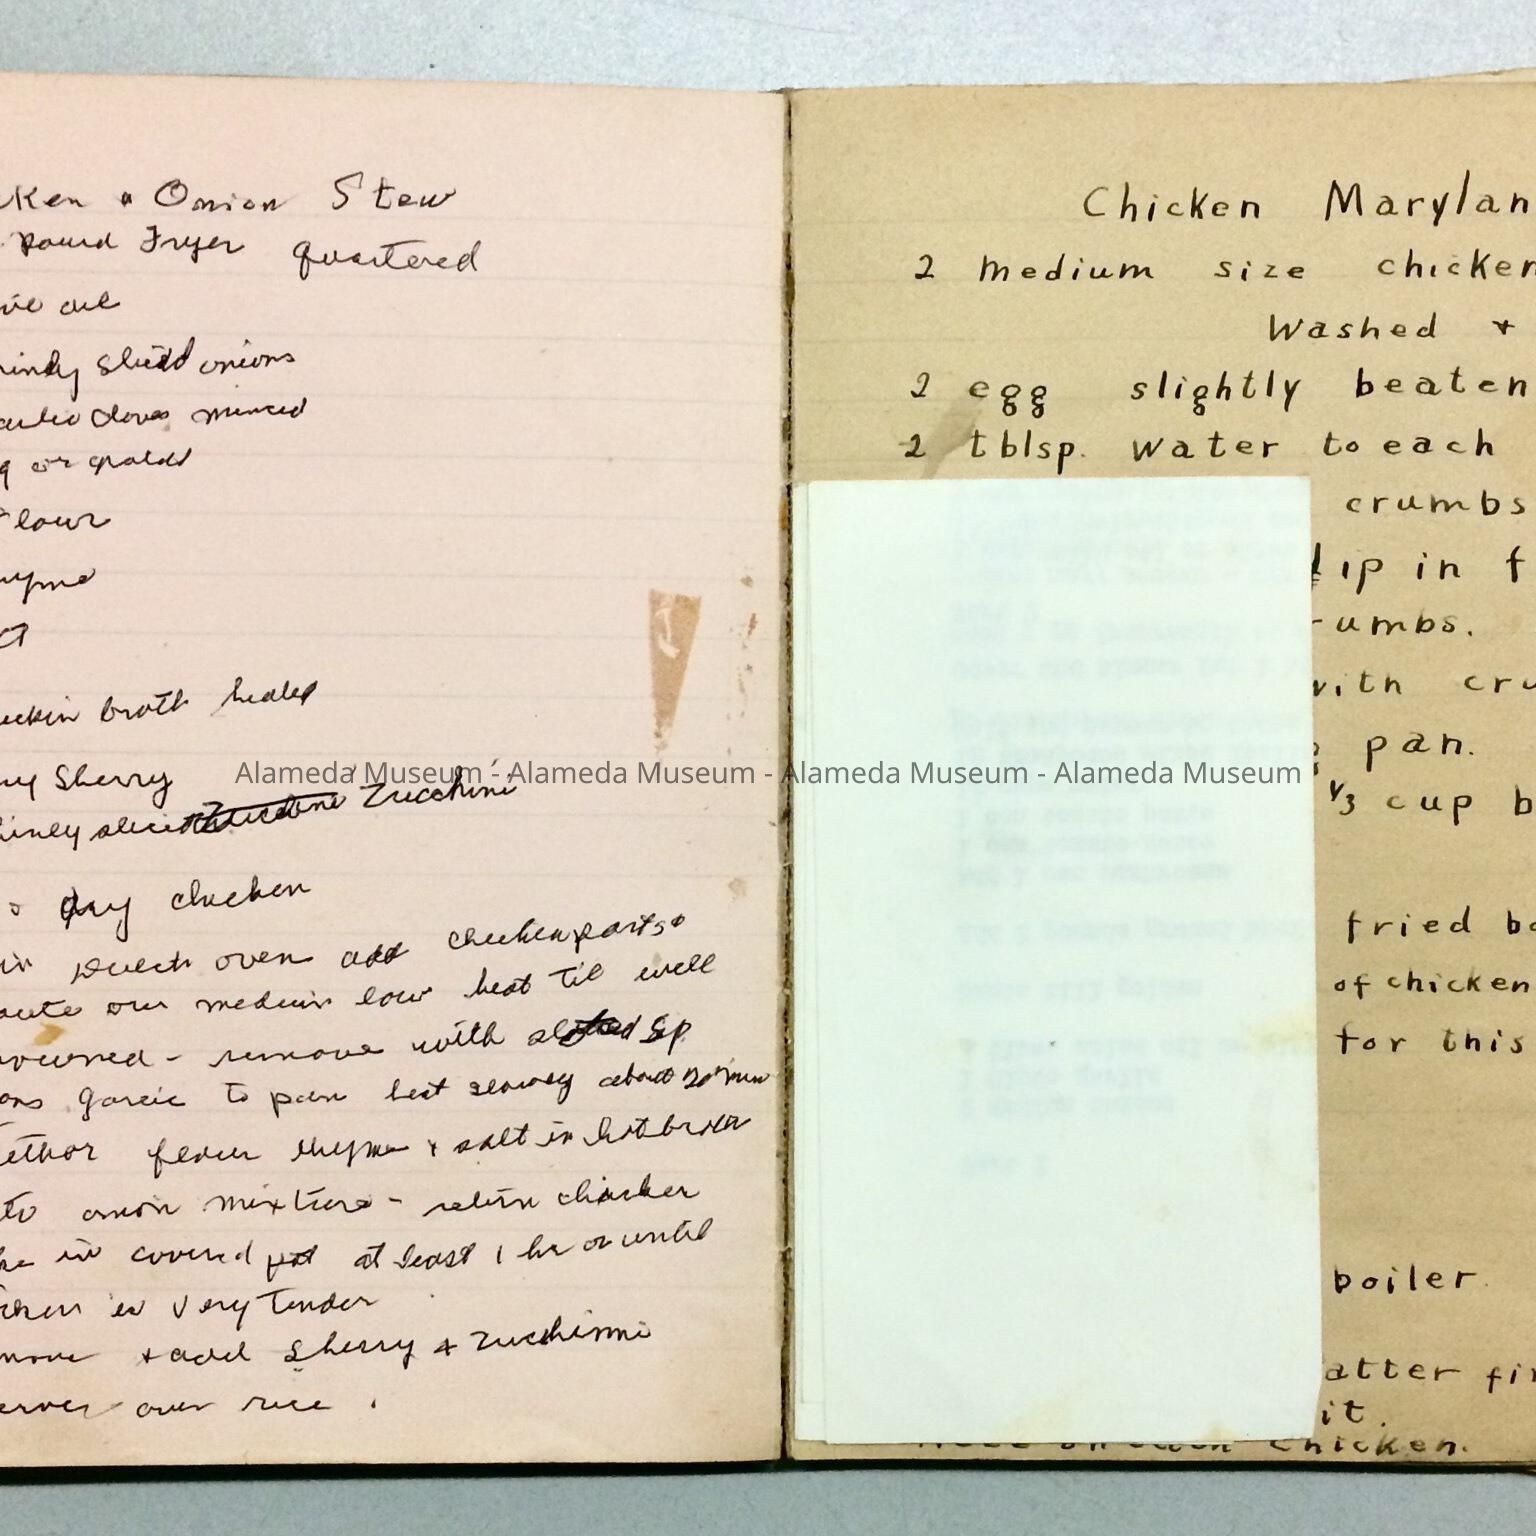 ken & Onion Stew
pound Fryer quartered
ive oil
hinly slicd onions
arlic cloves minced
Flour
hyme
hickin broth heated
ry Sherry
hinly slicd Zucchini
dry chicken
in dutch oven add chicken parts &
aute over medium low heat til well
rowned - remove with slotted sp
ons garlic to pan heat slowly about 20 min
ether flour thyme & salt in hot broth
to onion mixture - return chicken
ke in covered pot at least 1 hr or until
icken is very tender
move & add Sherry & zucchinni
erve over rice .
Chicken Marylan
2 medium size chicken
Washed +
2 egg slightly beaten
2 tblsp. water to each
crumbs
dip in f
rumbs.
with cru
pan.
1/3 cup b
fried ba
of chicken
for this
boiler.
atter fir
it.
chicken.
Alameda Museum - Alameda Museum - Alameda Museum - Alameda Museum